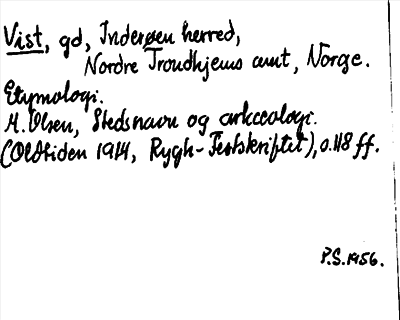 Vist, gd, Inderøen herred,
Nordre Trondhjems amt, Norge.
Etymologi.
M. Olsen, Stedsnavn og arkæologi.
(Oldtiden 1914, Rygh-Festskriftet), s. 118 ff.
P.S. 1956.